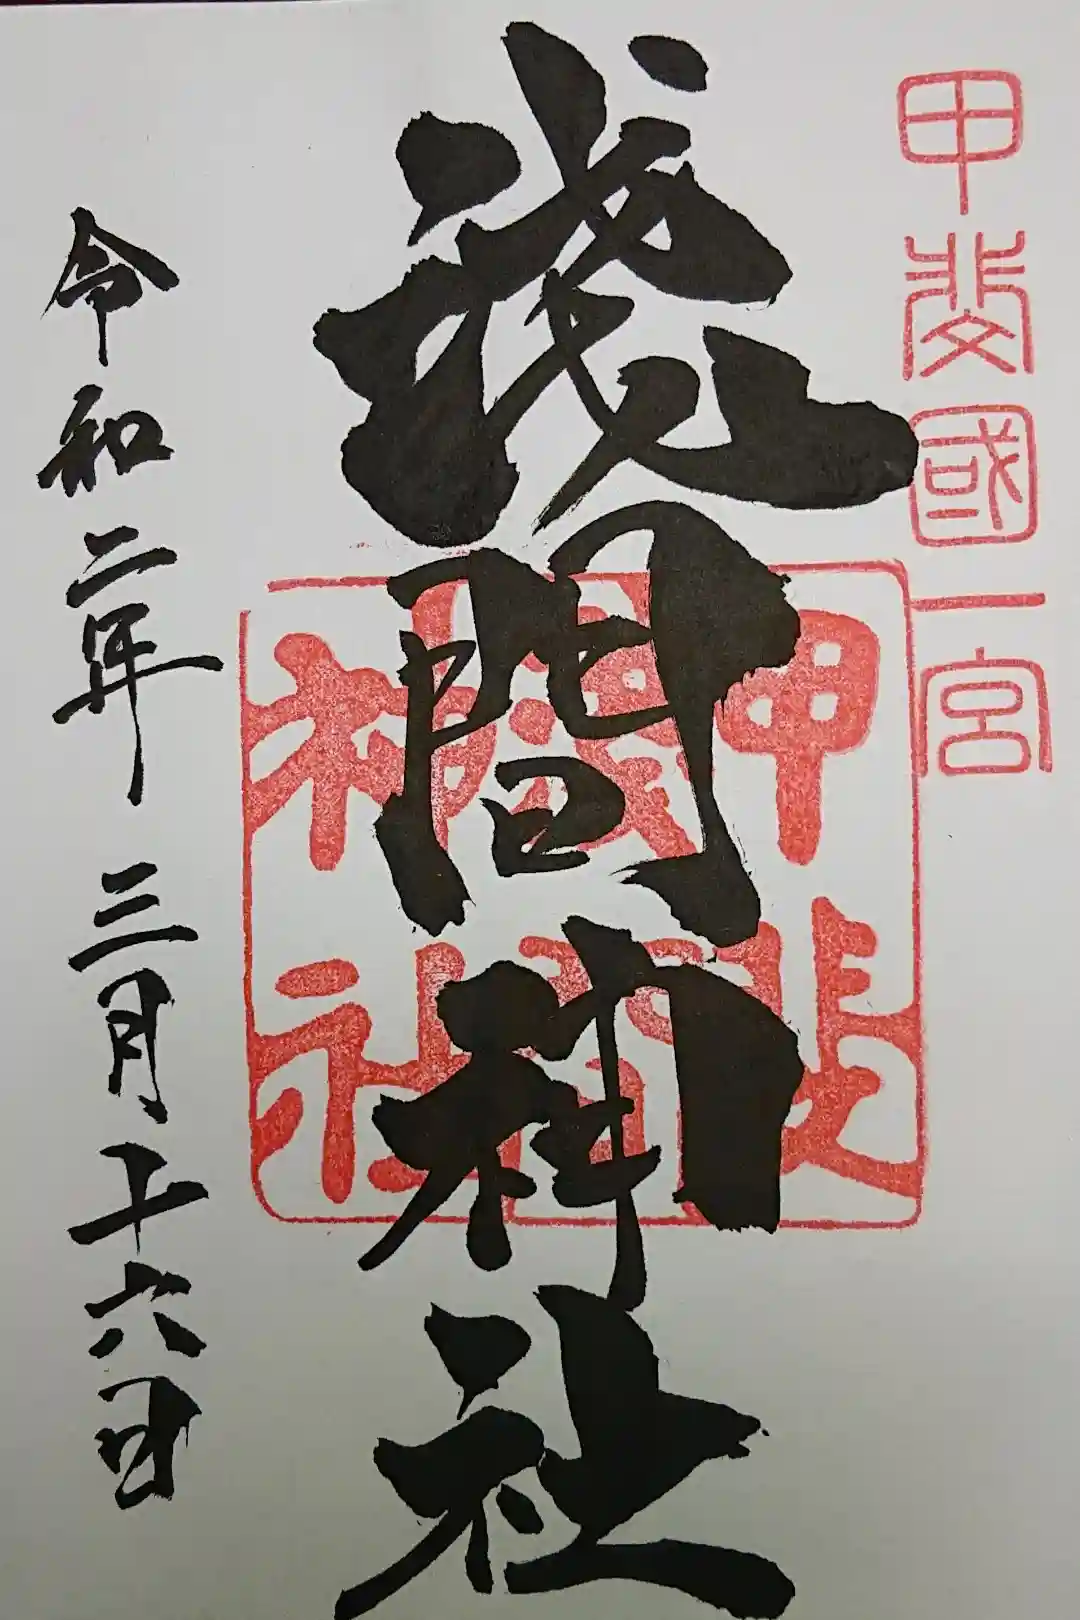 甲斐國一宮
淺間神社
甲斐
淺間
神社
令和二年三月十六日